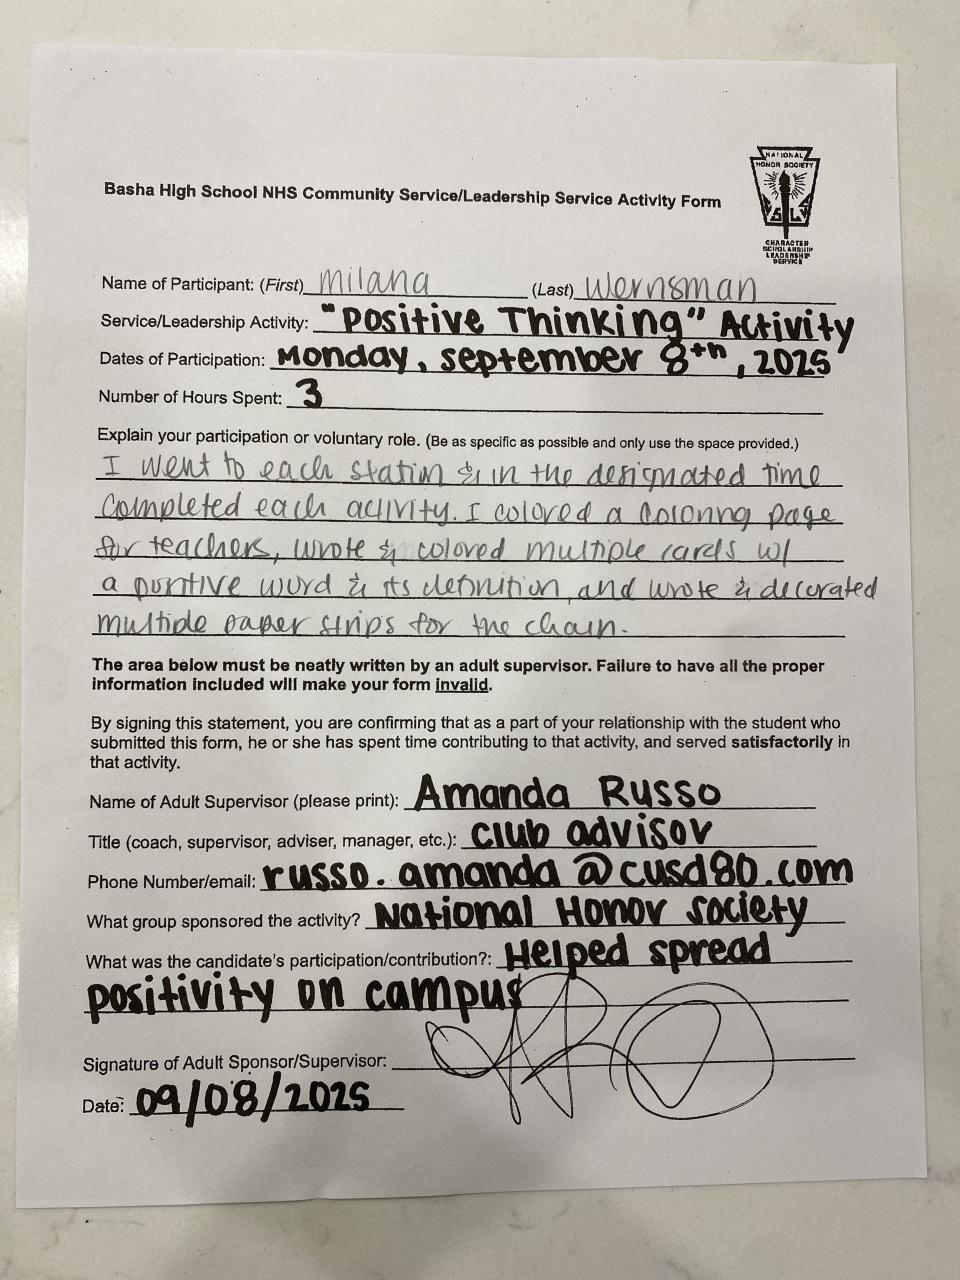 NATIONAL
HONOR SOCIETY
CHARACTER
SCHOLARSHIP
LEADERSHIP
SERVICE
Basha High School NHS Community Service/Leadership Service Activity Form
Name of Participant: (First) Milana (Last) Wernsman
Service/Leadership Activity: "Positive Thinking" Activity
Dates of Participation: Monday, september 8th, 2025
Number of Hours Spent: 3
Explain your participation or voluntary role. (Be as specific as possible and only use the space provided.)
I went to each station & in the designated time
completed each activity. I colored a coloring page
for teachers, wrote & colored multiple cards w/
a positive word & its definition, and wrote & decorated
multiple paper strips for the chain.
The area below must be neatly written by an adult supervisor. Failure to have all the proper
information included will make your form invalid.
By signing this statement, you are confirming that as a part of your relationship with the student who
submitted this form, he or she has spent time contributing to that activity, and served satisfactorily in
that activity.
Name of Adult Supervisor (please print): Amanda Russo
Title (coach, supervisor, adviser, manager, etc.): club advisor
Phone Number/email: russo.amanda@cusd80.com
What group sponsored the activity? National Honor Society
What was the candidate's participation/contribution?: Helped spread
positivity on campus
Signature of Adult Sponsor/Supervisor:
Date: 09/08/2025